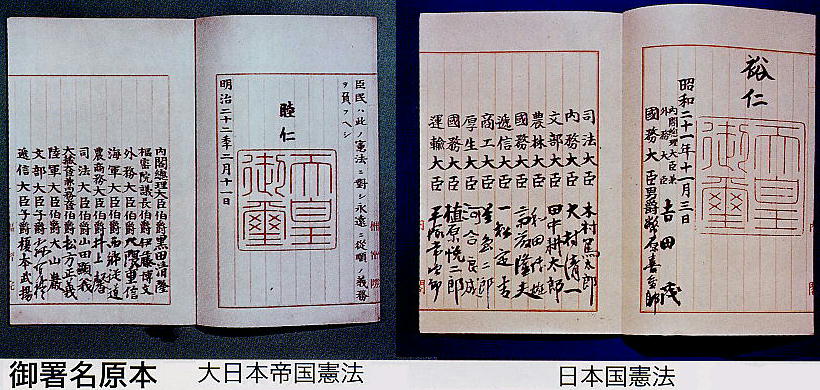 臣民ハ此ノ憲法ニ對シ永遠ニ從順ノ義務
ヲ負フヘシ
睦仁
天皇
御璽
明治二十二年二月十一日
内閣總理大臣伯爵黒田清隆
樞密院議長伯爵伊藤博文
外務大臣伯爵大隈重信
海軍大臣伯爵西郷從道
農商務大臣伯爵井上馨
司法大臣伯爵山田顯義
大藏大臣兼内務大臣伯爵松方正義
陸軍大臣伯爵大山巖
文部大臣子爵森有禮
遞信大臣子爵榎本武揚
裕仁
天皇
御璽
昭和二十一年十一月三日
内閣總理大臣兼
外務大臣 吉田茂
國務大臣男爵幣原喜重郎
司法大臣 木村篤太郎
内務大臣 大村清一
文部大臣 田中耕太郎
農林大臣 和田博雄
國務大臣 斎藤隆夫
遞信大臣 一松定吉
商工大臣 星島二郎
厚生大臣 河合良成
國務大臣 植原悦二郎
運輸大臣 平塚常次郎
御署名原本 大日本帝国憲法 日本国憲法